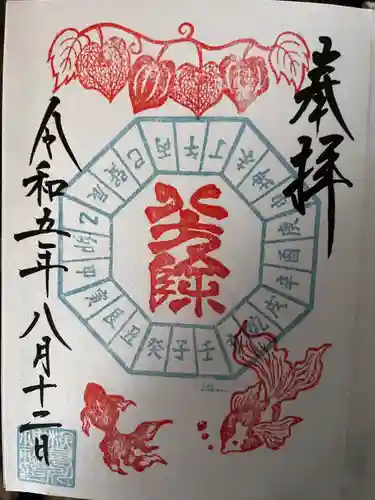 奉拝
八方除
丙午丁未坤申庚酉辛戌乾亥壬子癸丑艮寅甲卯乙辰巽巳
令和五年八月十二日